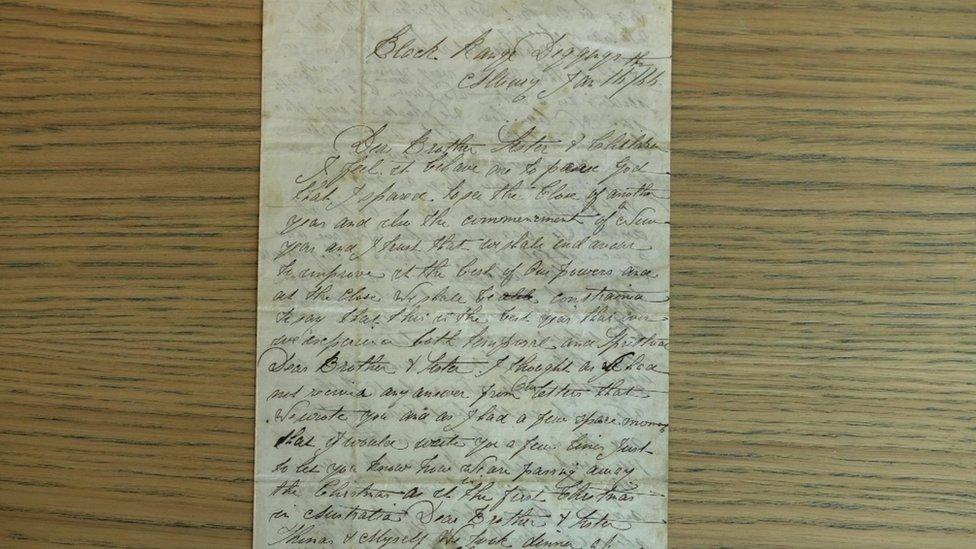 Black Range Diggings
Albury Jan 1th/64
Dear Brother Sister & Children
I feel it behave me to praise God
that I spared to see the Close of another
year and also the commencment of New
year and I trust that we shall endeavour
to improve it the best of Our powers and
at the Close We shall be able constraind
to say that this is the best year that ever
we experience both temporal and Spiritual
Dear Brother & Sister I thought as I had
not received any answer from Our letters that
We wrote you and as I had a few spare moments
that I would write you a few lines Just
to let you know how We are passing away
the Christmas as it the first Christmas
in Australia Dear Brother & Sister
& Myself We took dinner